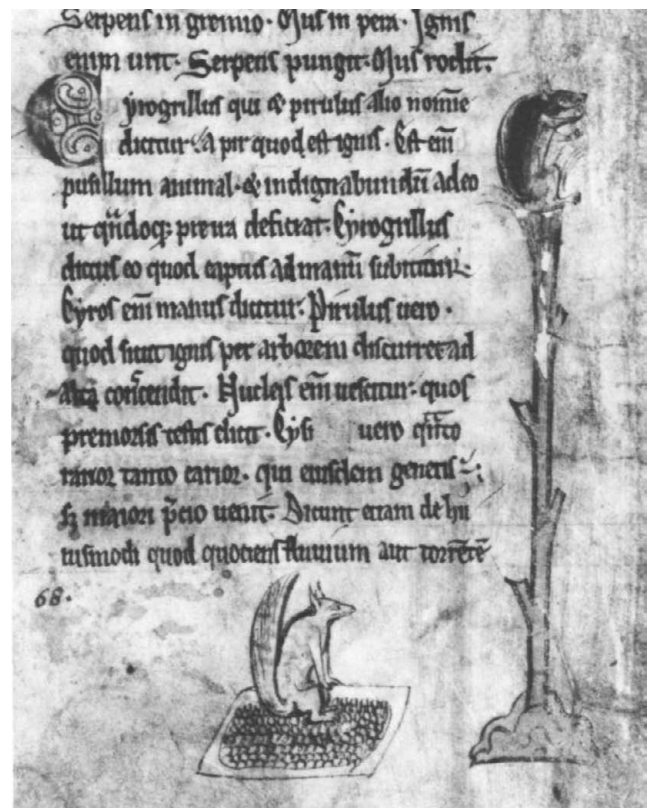 Serpens in gremio. Mus in pera. Ignis
enim urit. Serpens pungit. Mus rodit.
Cyrogrillus qui & pirulus alio noīe
dicitur a pir quod est ignis. Est em̄
pusillum animal. & indignabundū adeo
ut qn̄doqꝫ preira deficiat. Cyrogrillus
dictus eo quod captus ad manū
Cyros em̄ manus dicitur. Pirulus uero.
quod sicut ignis per arborem discurret ad
alta cōscendit. Nucleis em̄ uescitur. quos
premorsis testis elicit. uero qn̄to
rarior tanto carior. qui eiusdem generis
sꝫ maiori p̄cio uenit. Dicunt etiam de hu
iusmodi quod quociens fluuium aut torrētē
68.